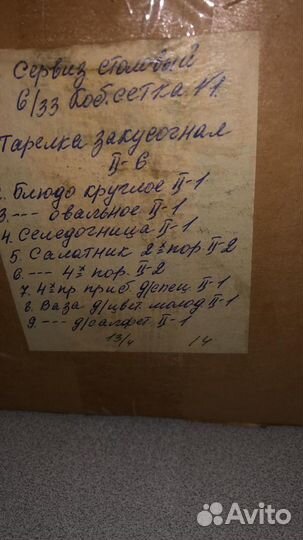 Сервиз столовый
6/33 Коб.сетка №1.
Тарелка закусочная
II-6
2. Блюдо круглое II-1
3. --- овальное II-1
4. Селедочница II-1
5. Салатник 2х пор II-2
6. --- 4х пор. II-2
7. 4х пр. приб д/спец II-1
8. Ваза д/цвет молод II-1
9. --- д/салфет II-1
13/4 14
Avito